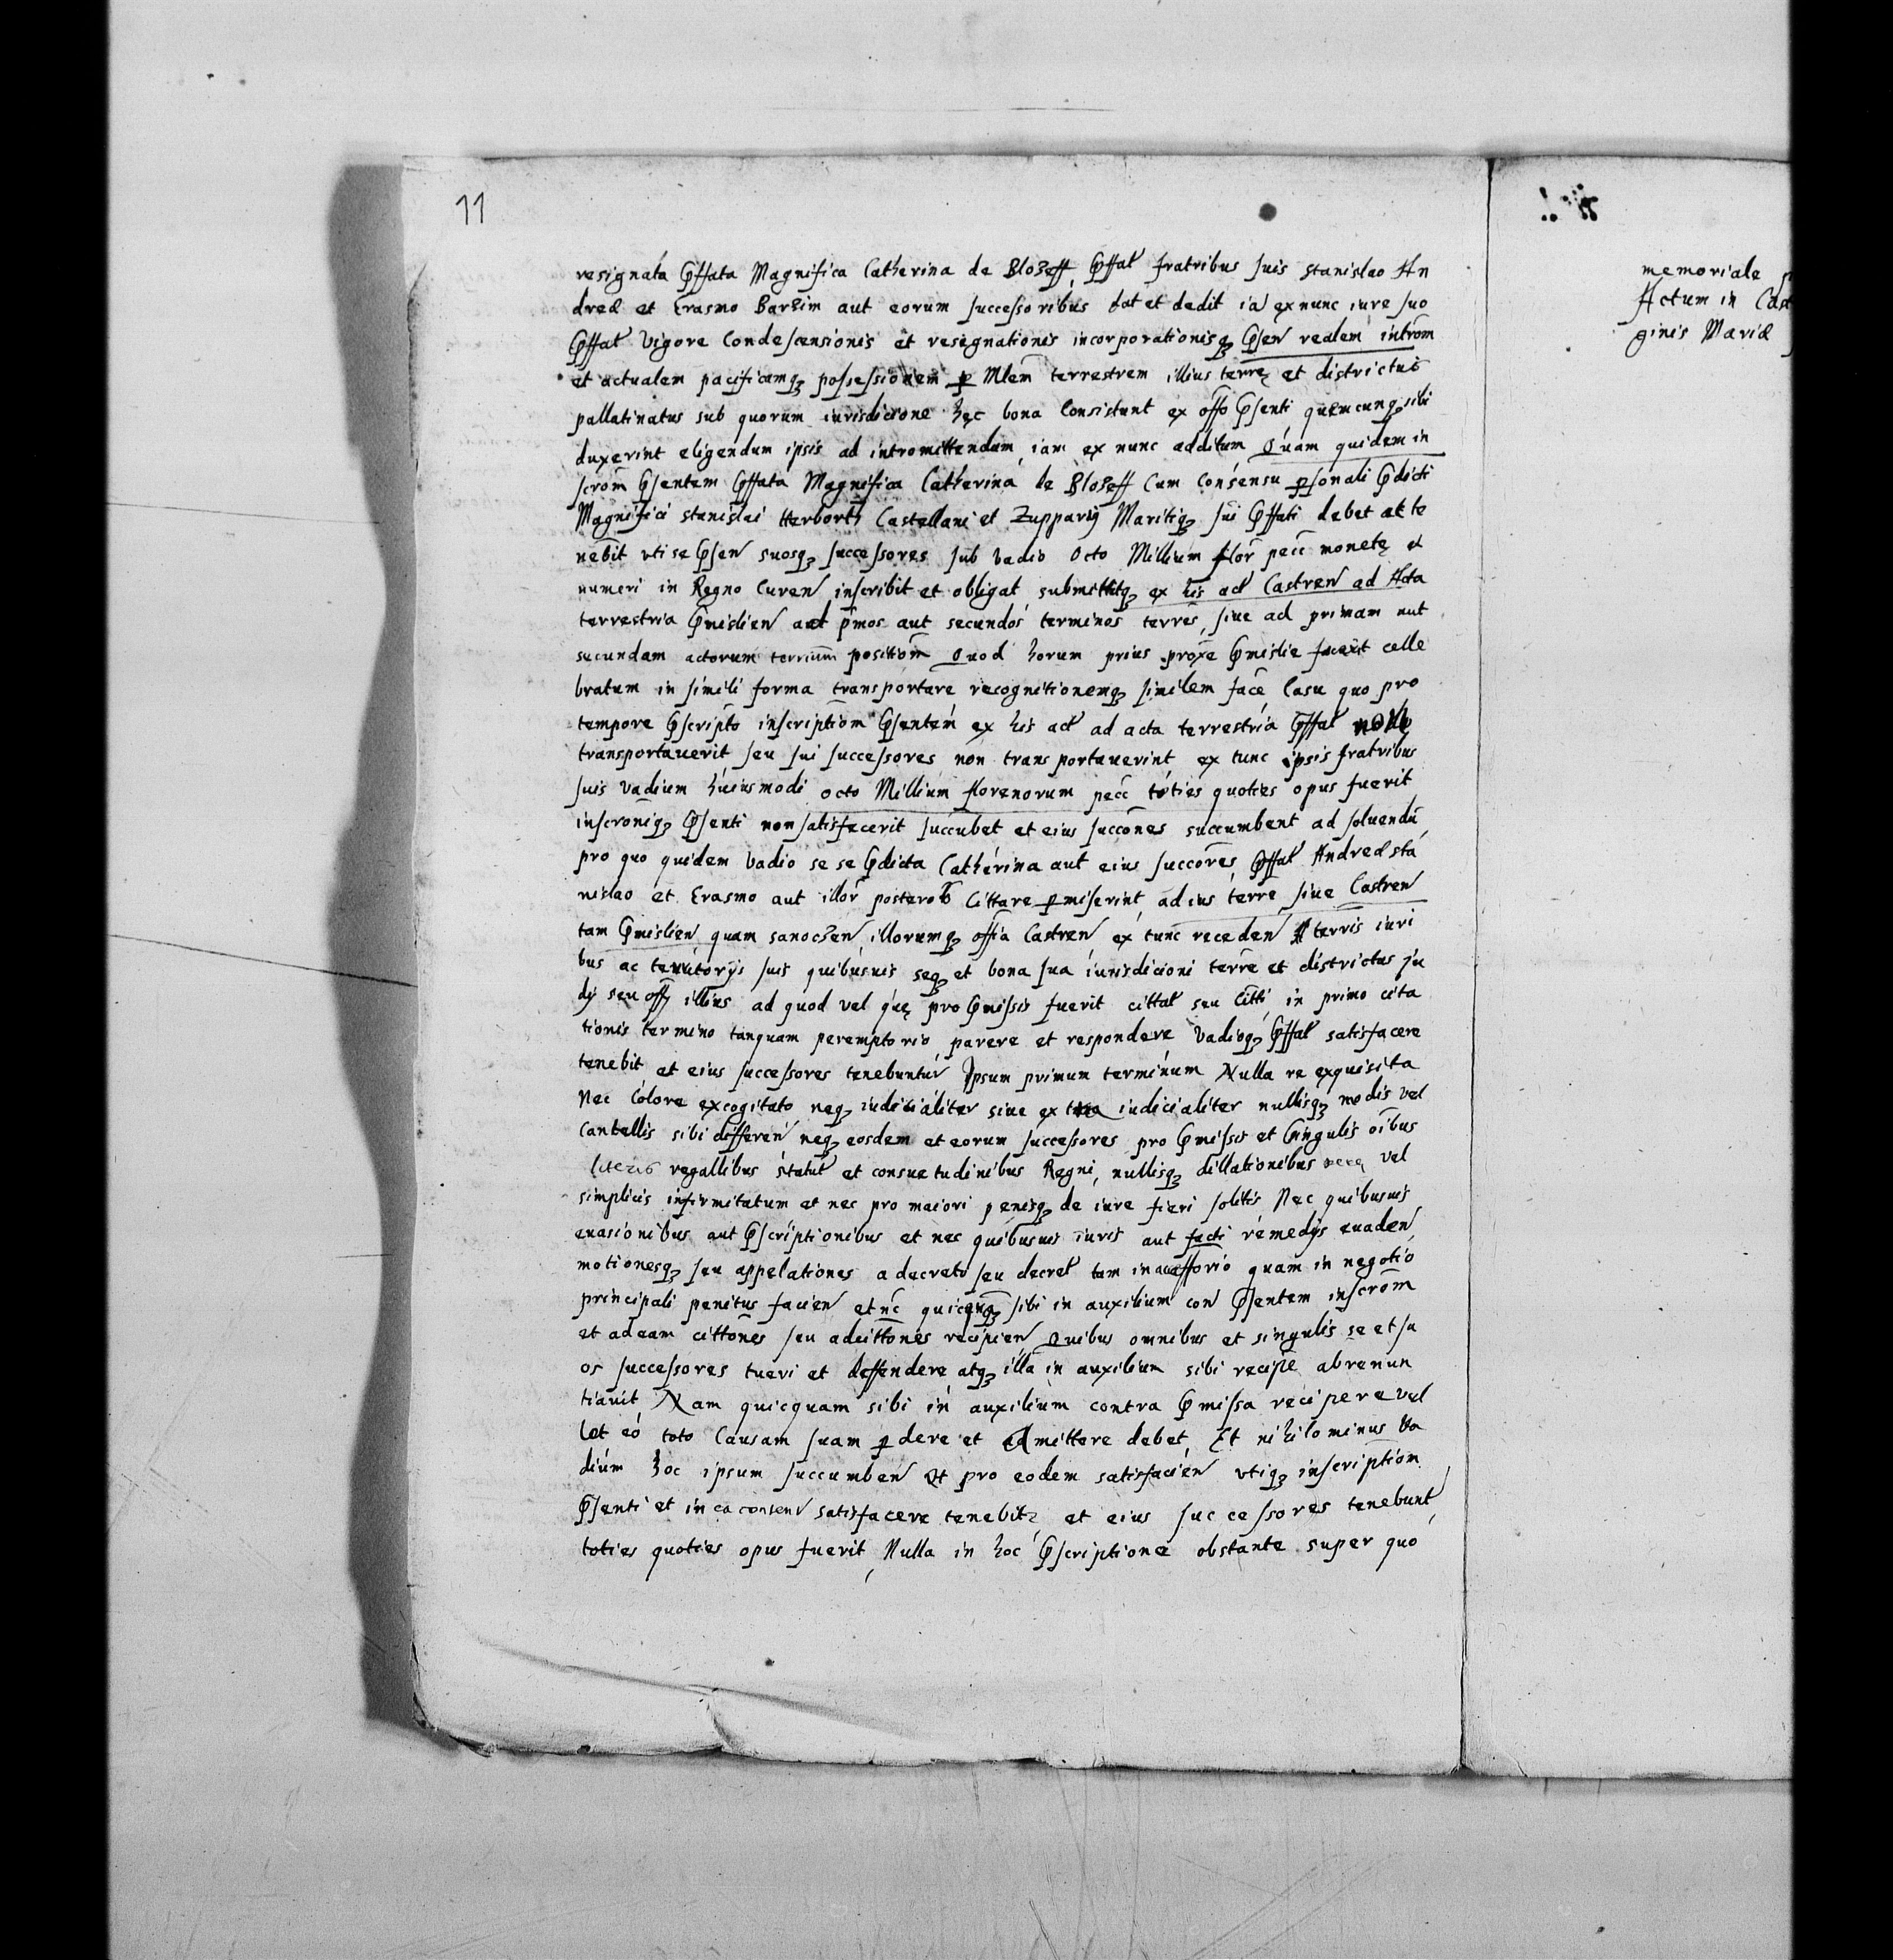 11
resignata Pffata Magnifica Catherina de Blozeff Pffat fratribus suis Stanislao An
dreæ et Erasmo Barzim aut eorum successoribus dat et dedit ia ex nunc iure suo
Pffat Vigore Condescensionis et resignationis incorporationisq Psen realem introm
et actualem pacificamq possessionem p Mlem terrestrem illius terrę et districtus
pallatinatus sub quorum iurisdicione hęc bona Consistunt ex offo Psenti quemcunq sibi
duxerint eligendum ipsis ad intromittendum iam ex nunc additum Quam quidem in
scrom Psentem Pffata Magnifica Catherina de Blozeff Cum Consensu psonali Pdicti
Magnifici Stanislai Herborth Castellani et Zupparij Maritiq sui Pffati debet et te
nebit vti se Psen suosq successores sub vadio Octo Millium flor pecc monetę et
numeri in Regno Curen inscribit et obligat submittitq ex his act Castren ad Acta
terrestria Pmislien ad pmos aut secundos terminos terres, siue ad primam aut
secundam actorum terrium positiom Quod horum prius proxe Pmislie fuerit celle
bratum in simili forma transportare recognitionemq similem face Casu quo pro
tempore Pscripto inscriptiom Psentem ex his act ad acta terrestria Pffat non
transportauerit seu sui successores non transportauerint ex tunc ipsis fratribus
suis vadium huiusmodi octo Millium florenorum pecc toties quoties opus fuerit
inscroniq Psenti non satisfecerit succubet et eius succones succumbent ad soluendu
pro quo quidem vadio se se Pdicta Catherina aut eius succores Pffat Andreæ Sta
nislao et Erasmo aut illor posterob Cittare pmiserint ad ius terre siue Castren
tam Pmislien quam sanoczen illorumq offia Castren ex tunc receden A terris iuri
bus ac territorijs suis quibusuis seq et bona sua iurisdicioni terre et districtus ju
dij seu offij illius ad quod vel quę pro Pmissis fuerit cittat seu Citti in primo cita
tionis termino tanquam peremptorio parere et respondere Vadioq Pffat satisfacere
tenebit et eius successores tenebuntur Ipsum primum terminum Nulla re exquisita
Nec Colore excogitato neq iudicialiter siue extra iudicialiter nullisq modis vel
Cantellis sibi differen neq eosdem et eorum successores pro Pmissis et singulis oibus
literis regallibus statut et consuetudinibus Regni, nullisq dillationibus vel
simplicis infirmitatum et nec pro maiori penisq de iure fieri solitis Nec quibusuis
euasionibus aut Pscriptionibus et nec quibusuis iuris aut facti remedijs euaden
motionesq seu appelationes a decreto seu decret tam in accessorio quam in negotio
principali penitus facien et nc quicqnq sibi in auxilium con Psentem inscrom
et ad eam cittones seu ad cittones recipien Quibus omnibus et singulis se et su
os successores tueri et deffendere atq illa in auxilium sibi recipe abrenun
tiauit Nam quicquam sibi in auxilium contra Pmissa recipere vel
let eo toto Causam suam pdere et admittere debet, Et nihilominus Va
dium hoc ipsum succumben et pro eodem satisfacien vtiq inscriptiom
Psenti et in ea conten satisfacere tenebit, et eius successores tenebunt
toties quoties opus fuerit, Nulla in hoc Pscriptione obstante super quo
memoriale
Actum in Cast
ginis Mariæ